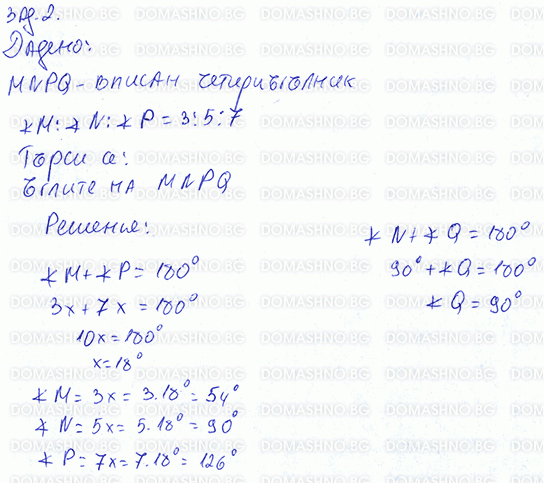 зад. 2.
Дадено:
MNPQ - описан четириъгълник
∢M:∢N:∢P = 3:5:7
Търси се:
ъглите на MNPQ
Решение:
∢M+∢P = 180°
3x+7x = 180°
10x = 180°
x = 18°
∢M = 3x = 3.18° = 54°
∢N = 5x = 5.18° = 90°
∢P = 7x = 7.18° = 126°
∢N+∢Q = 180°
90°+∢Q = 180°
∢Q = 90°
DOMASHNO.BG